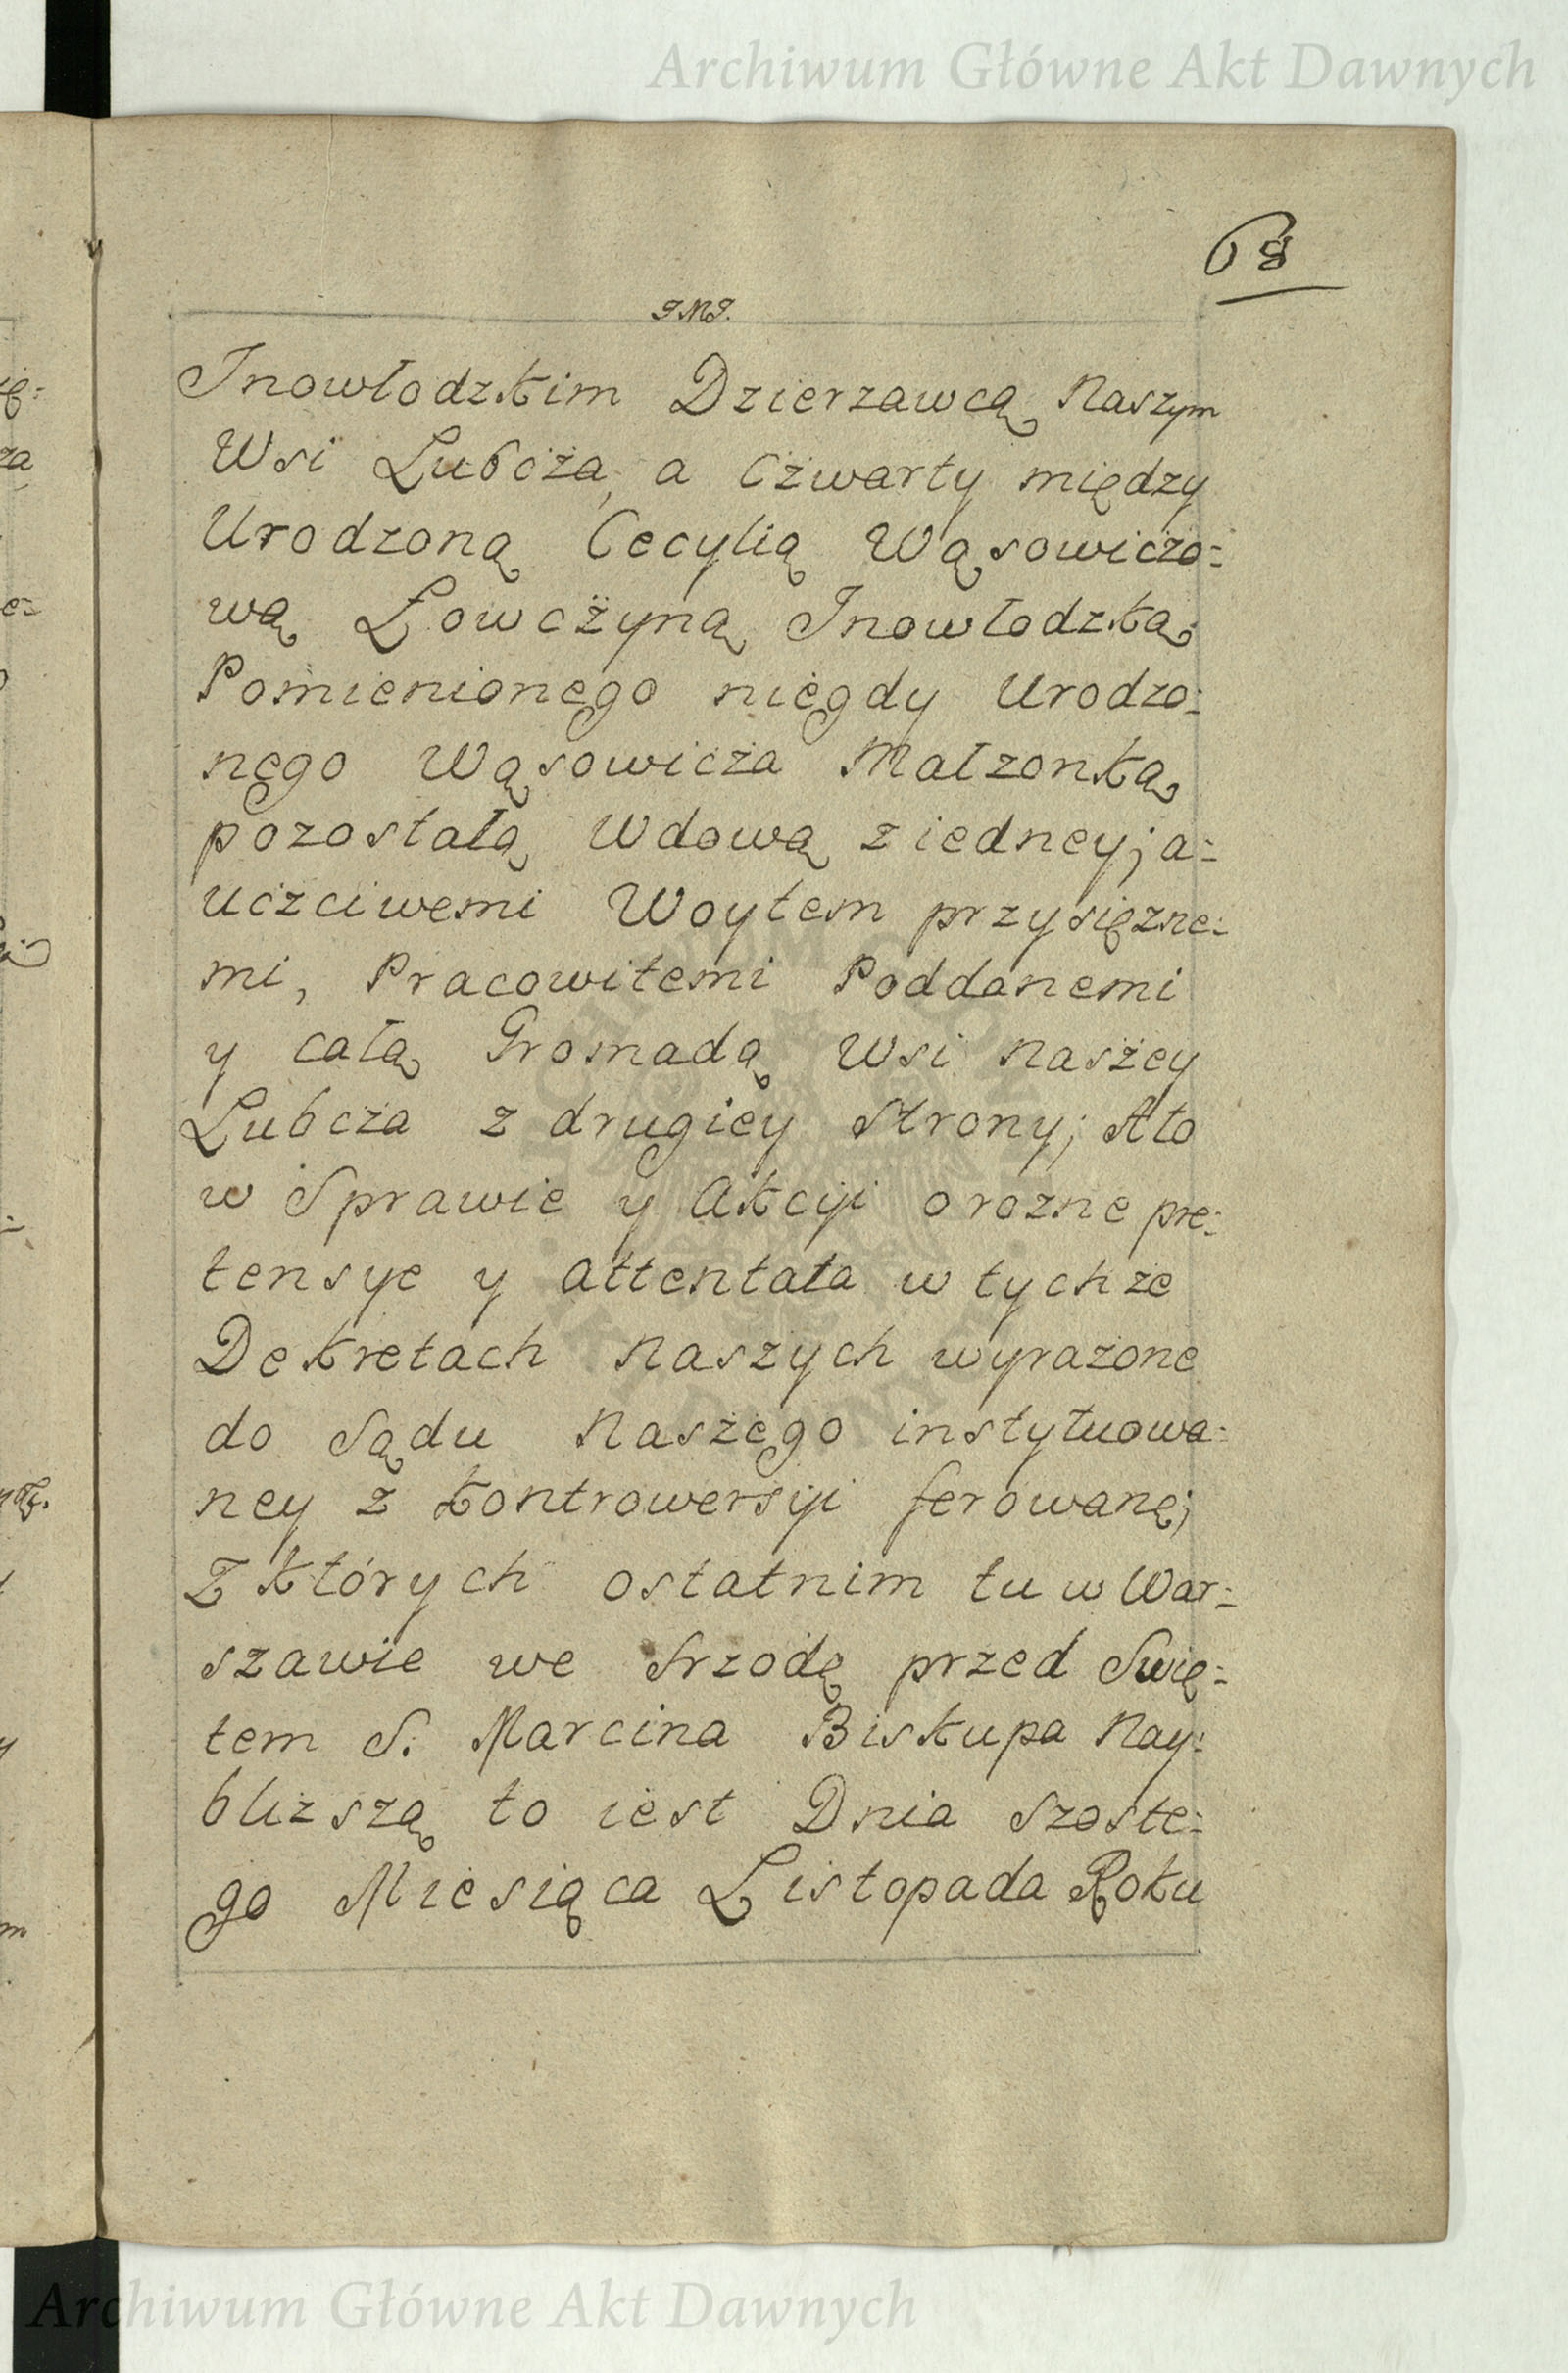 Archiwum Główne Akt Dawnych
68
JMJ.
Inowłodzkim Dzierzawcą Naszym
Wsi Lubcża, a Cżwarty między
Urodzoną Cecylią Wąsowicżo=
wą Łowcżyną Inowłodzką
Pomienionego niegdy Urodzo=
nego Wąsowicża Małzonką
pozostałą Wdową z iedney; a=
ucżciwemi Woytem przysięzne=
mi, Pracowitemi Poddanemi
y całą Gromadą Wsi Naszey
Lubcża z drugiey Strony; Ato
w Sprawie y Akcyi o rozne pre=
tensye y attentata w tychze
Dekretach Naszych wyrazone
do Sądu Naszego instytuowa=
ney z kontrowersyi ferowane;
Z ktorych ostatnim tu w War=
szawie we Srzodę przed Swię=
tem S. Marcina Biskupa Nay=
blizszą to iest Dnia szoste=
go Miesiąca Listopada Roku
Archiwum Główne Akt Dawnych